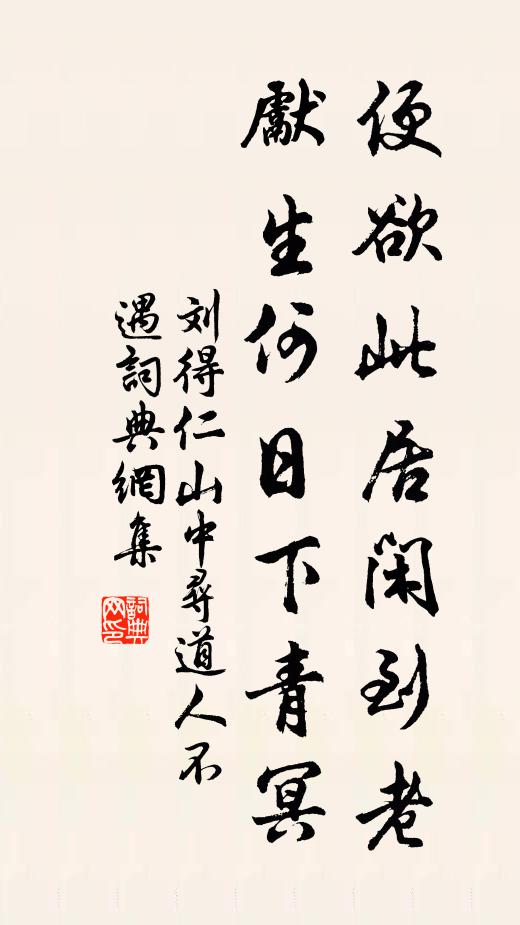 便欲此居閑到老
獻生何日下青冥
刘得仁山中尋道人不
遇詞典網集
詞典
网印